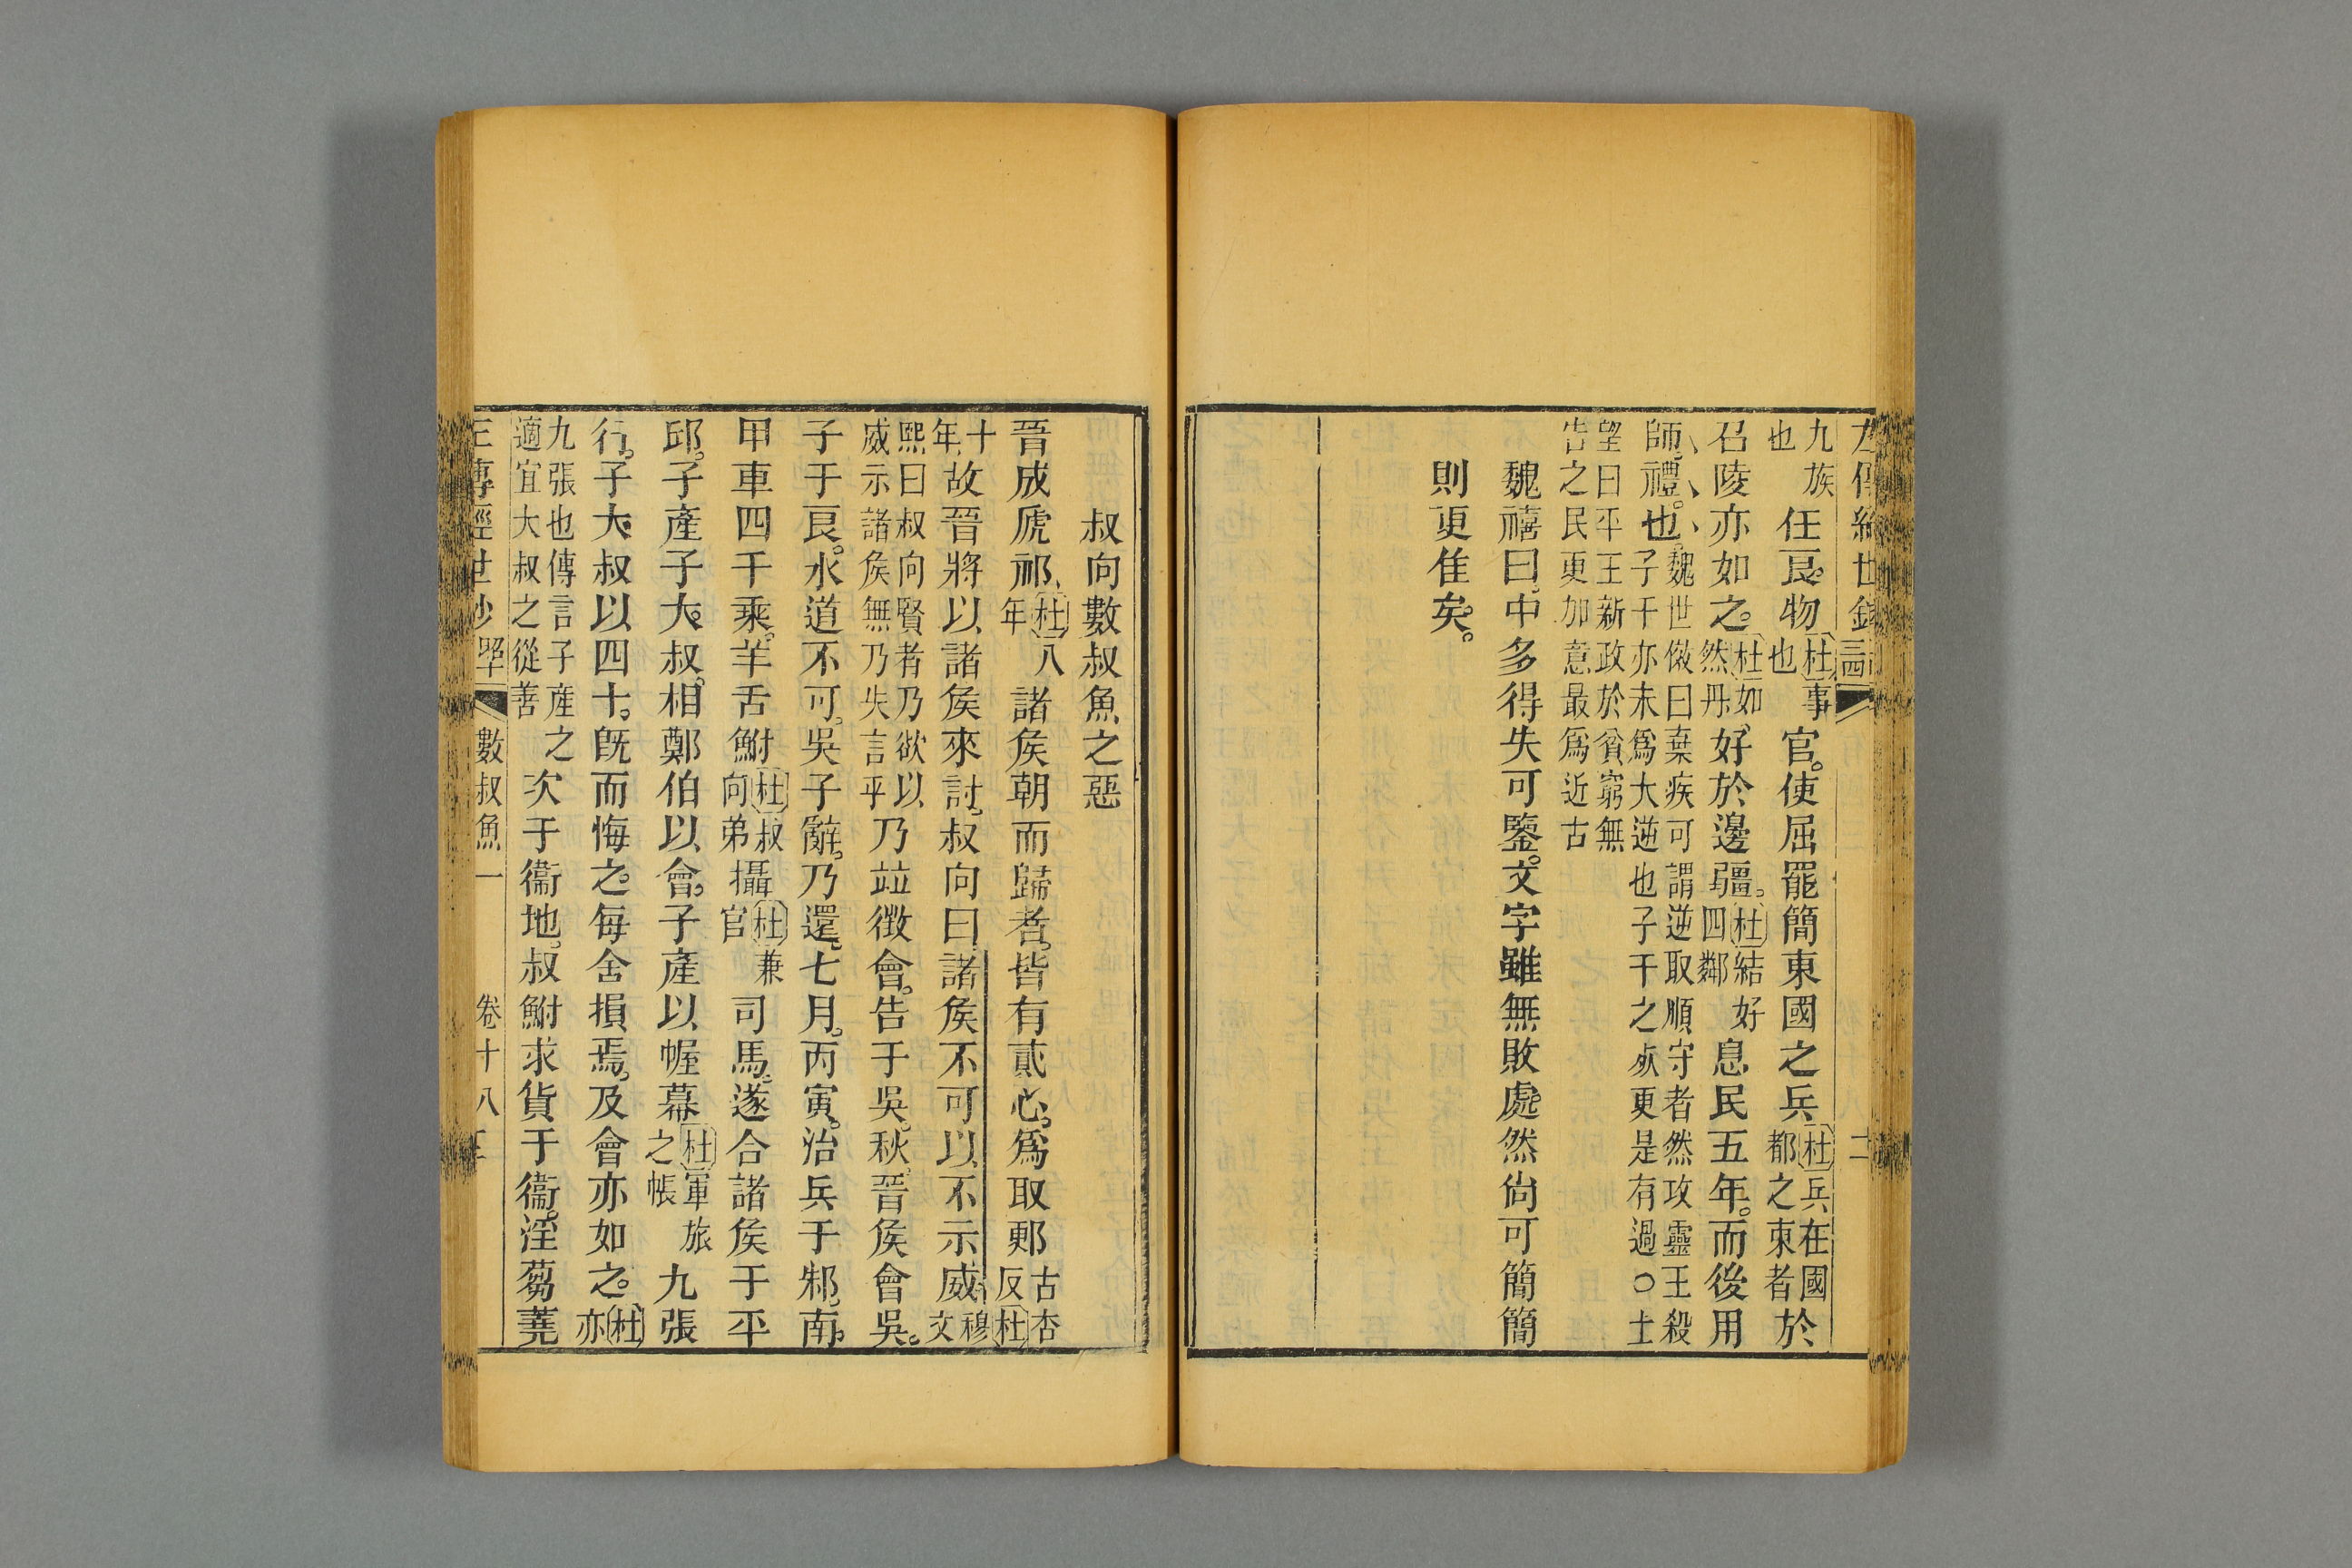 左傳經世鈔 二
九族也任良。物杜事也官。使屈罷簡東國之兵杜兵在國都之東者於
召陵亦如之。杜如然丹好於邊疆。杜結好四鄰息民五年。而後用
師、禮。也、魏世傚曰棄疾可謂逆取順守者然攻靈王殺子干亦未爲大逆也子干之死更是有過○士
望曰平王新政於貧窮無告之民更加意最爲近古
魏禧曰中多得失可鑒。文字雖無敗處然尙可簡簡
則更佳矣。
叔向數叔魚之惡
晉成虒祁、杜八年諸侯朝而歸者。皆有貳心。爲取郠古杏反杜
十年故晉將以諸侯來討。叔向曰諸侯不可以不示威穆文
熙曰叔向賢者乃欲以威示諸侯無乃失言乎乃竝徵會。告于吳。秋。晉侯會吳。
子于良。水道不可。吳子辭。乃還。七月。丙寅。治兵于邾。南。
甲車四千乘。羊舌鮒杜叔向弟攝杜兼官司馬。遂合諸侯于平
邱。子產子大叔。相鄭伯以會。子產以幄幕杜軍旅之帳九張
行。子大叔以四十。旣而悔之。每舍損焉。及會亦如之。杜亦
九張也傳言子產之適宜大叔之從善次于衞地。叔鮒求貨于衞。淫芻蕘
數叔魚一 卷十八